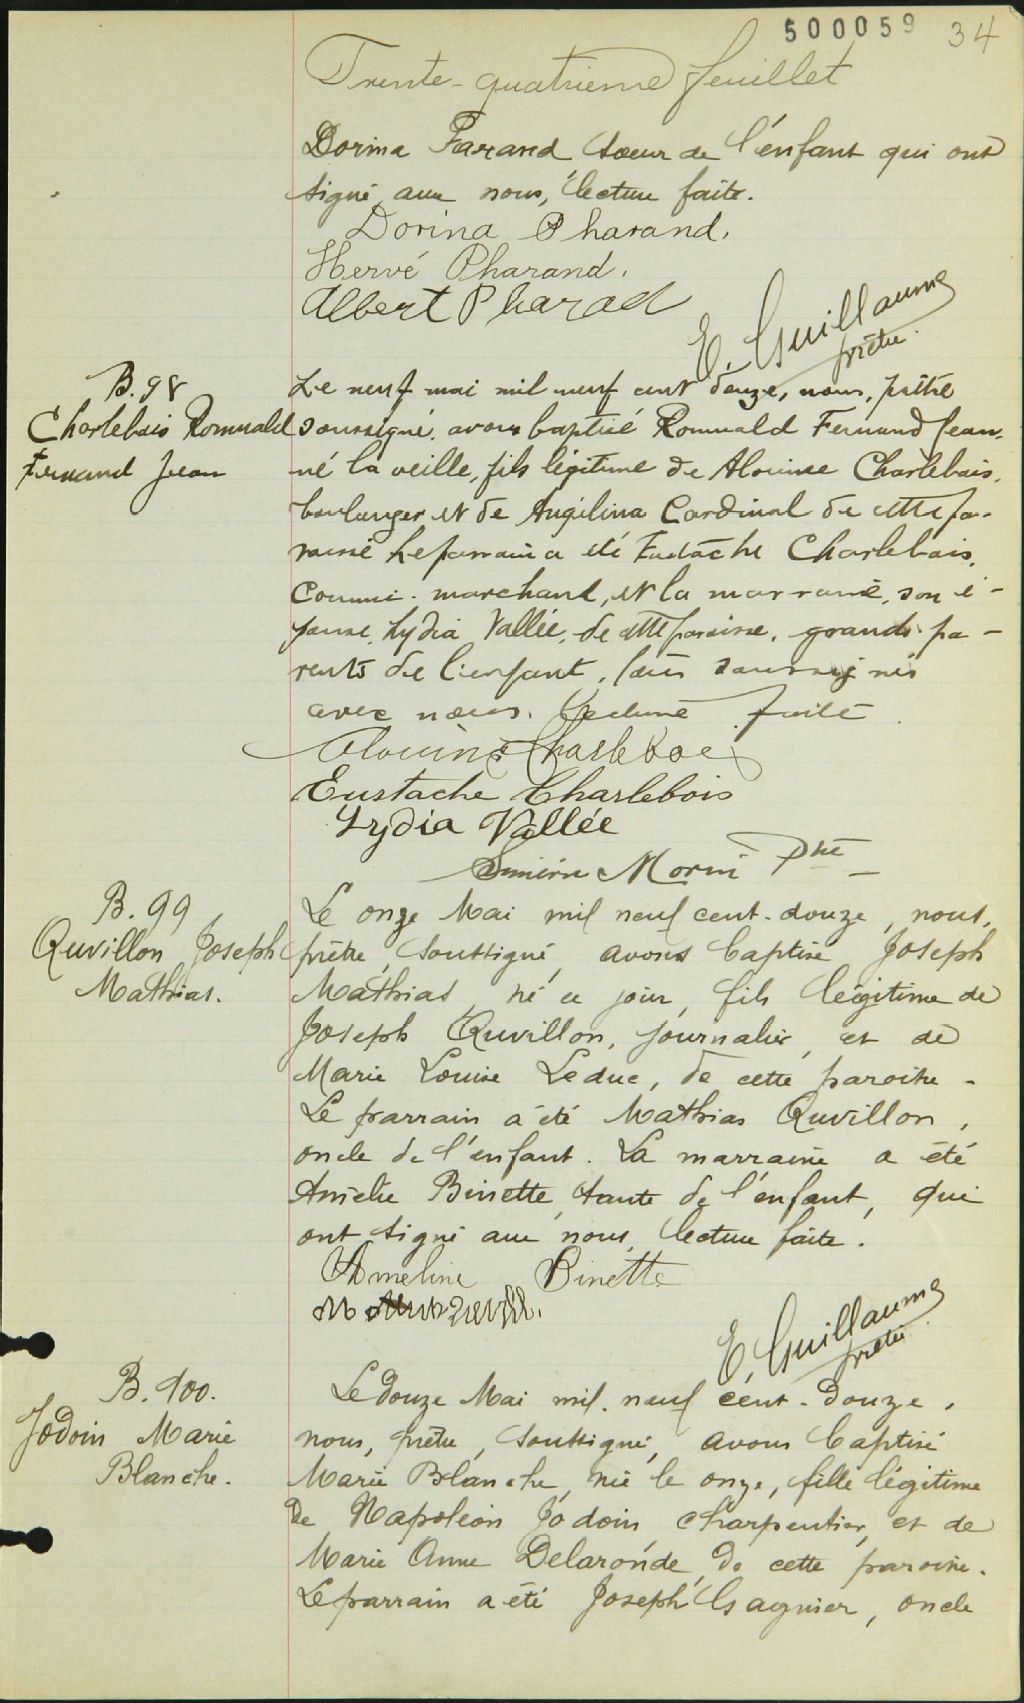 500059 34
Trente-quatrième feuillet
Dorina Farand soeur de l'enfant qui ont
signé avec nous, lecture faite.
Dorina Pharand.
Hervé Pharand.
Albert Pharad
E. Guillaume
prêtre.
B. 98
Charlebois Romuald
Fernand Jean
Le neuf mai mil neuf cent douze, nous, prêtre
soussigné, avons baptisé Romuald Fernand Jean,
né la veille, fils légitime de Alouinse Charlebois,
boulanger et de Angélina Cardinal de cette pa-
roisse Le parrain a été Eustache Charlebois,
commi-marchand, et la marraine, son é-
pouse, Lydia Vallée, de cette paroisse, grands-pa-
rents de l'enfant, soussignés
avec nous. Lecture faite.
Charlebois
Eustache Charlebois
Lydia Vallée
Siméon Morin Ptre
B. 99
Quvillon Joseph
Mathias.
Le onze Mai mil neuf cent-douze, nous,
prêtre, soussigné, avons baptisé Joseph
Mathias, né ce jour, fils légitime de
Joseph Quvillon, journalier, et de
Marie Louise Leduc, de cette paroisse.
Le parrain a été Mathias Quvillon,
oncle de l'enfant. La marraine a été
Binette, tante de l'enfant, qui
ont signé avec nous, lecture faite.
Ameline Binette
E. Guillaume
prêtre.
B. 100.
Jodoin Marie
Blanche.
Le douze Mai mil. neuf cent-douze,
nous, prêtre, soussigné, avons baptisé
Marie Blanche, née le onze, fille légitime
de Napoléon Jodoin, charpentier, et de
Marie Anne Delaronde, de cette paroisse.
Le parrain a été Joseph Gagnier, oncle